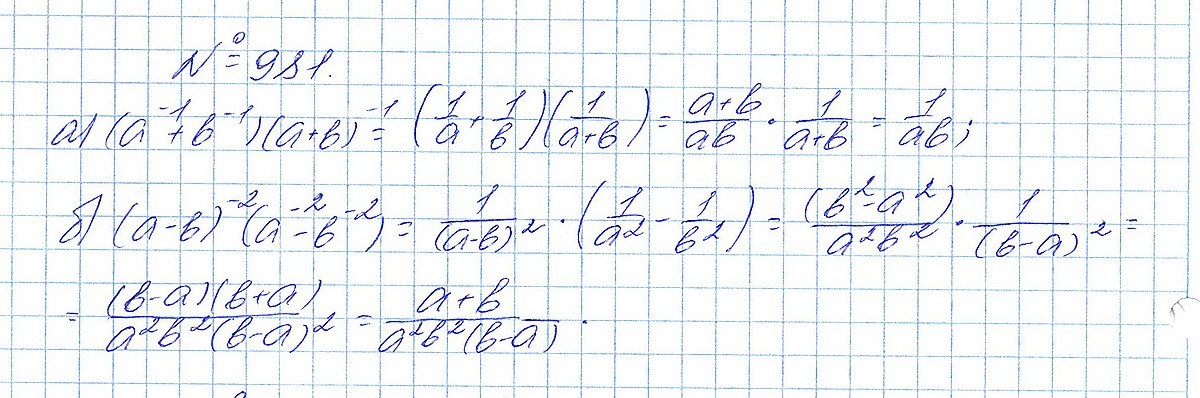 № 981.
а) (a⁻¹+b⁻¹)(a+b)⁻¹ = (1/a + 1/b)(1/(a+b)) = (a+b)/(ab) · 1/(a+b) = 1/(ab);
б) (a-b)⁻²(a⁻²-b⁻²) = 1/(a-b)² · (1/a² - 1/b²) = (b²-a²)/(a²b²) · 1/(b-a)² =
= (b-a)(b+a)/(a²b²(b-a)²) = (a+b)/(a²b²(b-a)).